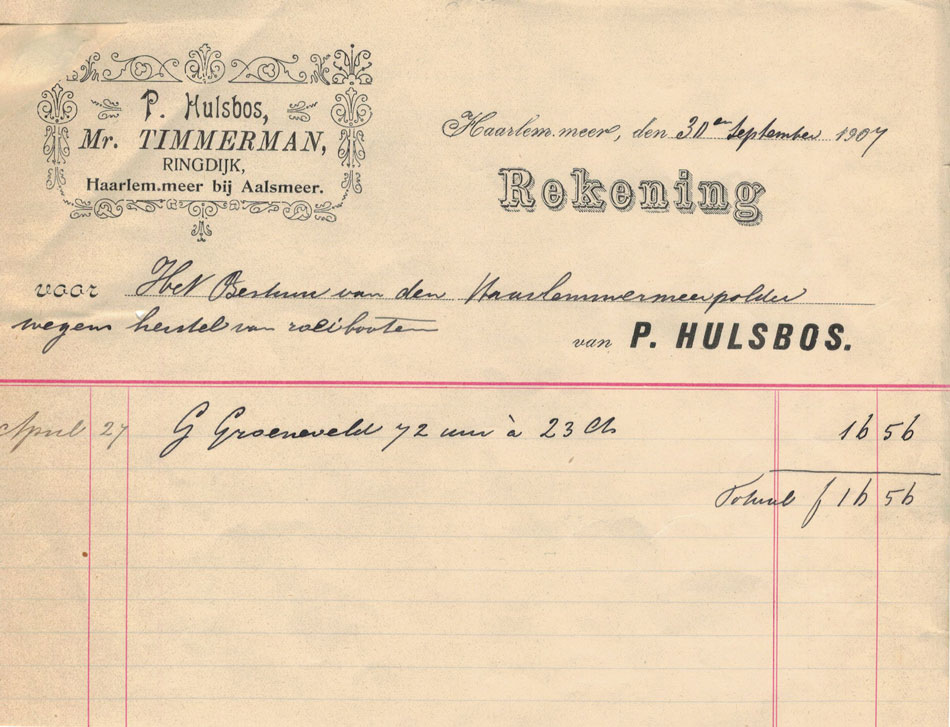 P. Hulsbos,
Mr. TIMMERMAN,
RINGDIJK,
Haarlem.meer bij Aalsmeer.
Haarlem.meer, den 30en September 1907
Rekening
voor Het Bestuur van den Haarlemmermeerpolder
wegens herstel van roeibooten
van P. HULSBOS.
April 27 G Groeneveld 72 uur à 23 Ct 16 56
Totaal f 16 56